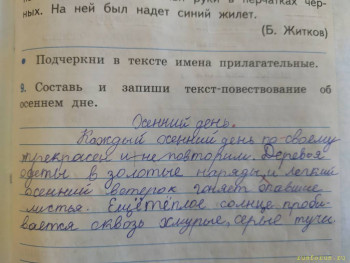 руки в перчатках чер-
ных. На ней был надет синий жилет.
(Б. Житков)
• Подчеркни в тексте имена прилагательные.
9. Составь и запиши текст-повествование об
осеннем дне.
Осенний день.
Каждый осенний день по-своему
прекрасен и не повторим. Деревья
одеты в золотые наряды и легкий
осенний ветерок гоняет опавшие
листья. Ещё тёплое солнце проби-
вается сквозь хмурые, серые тучи